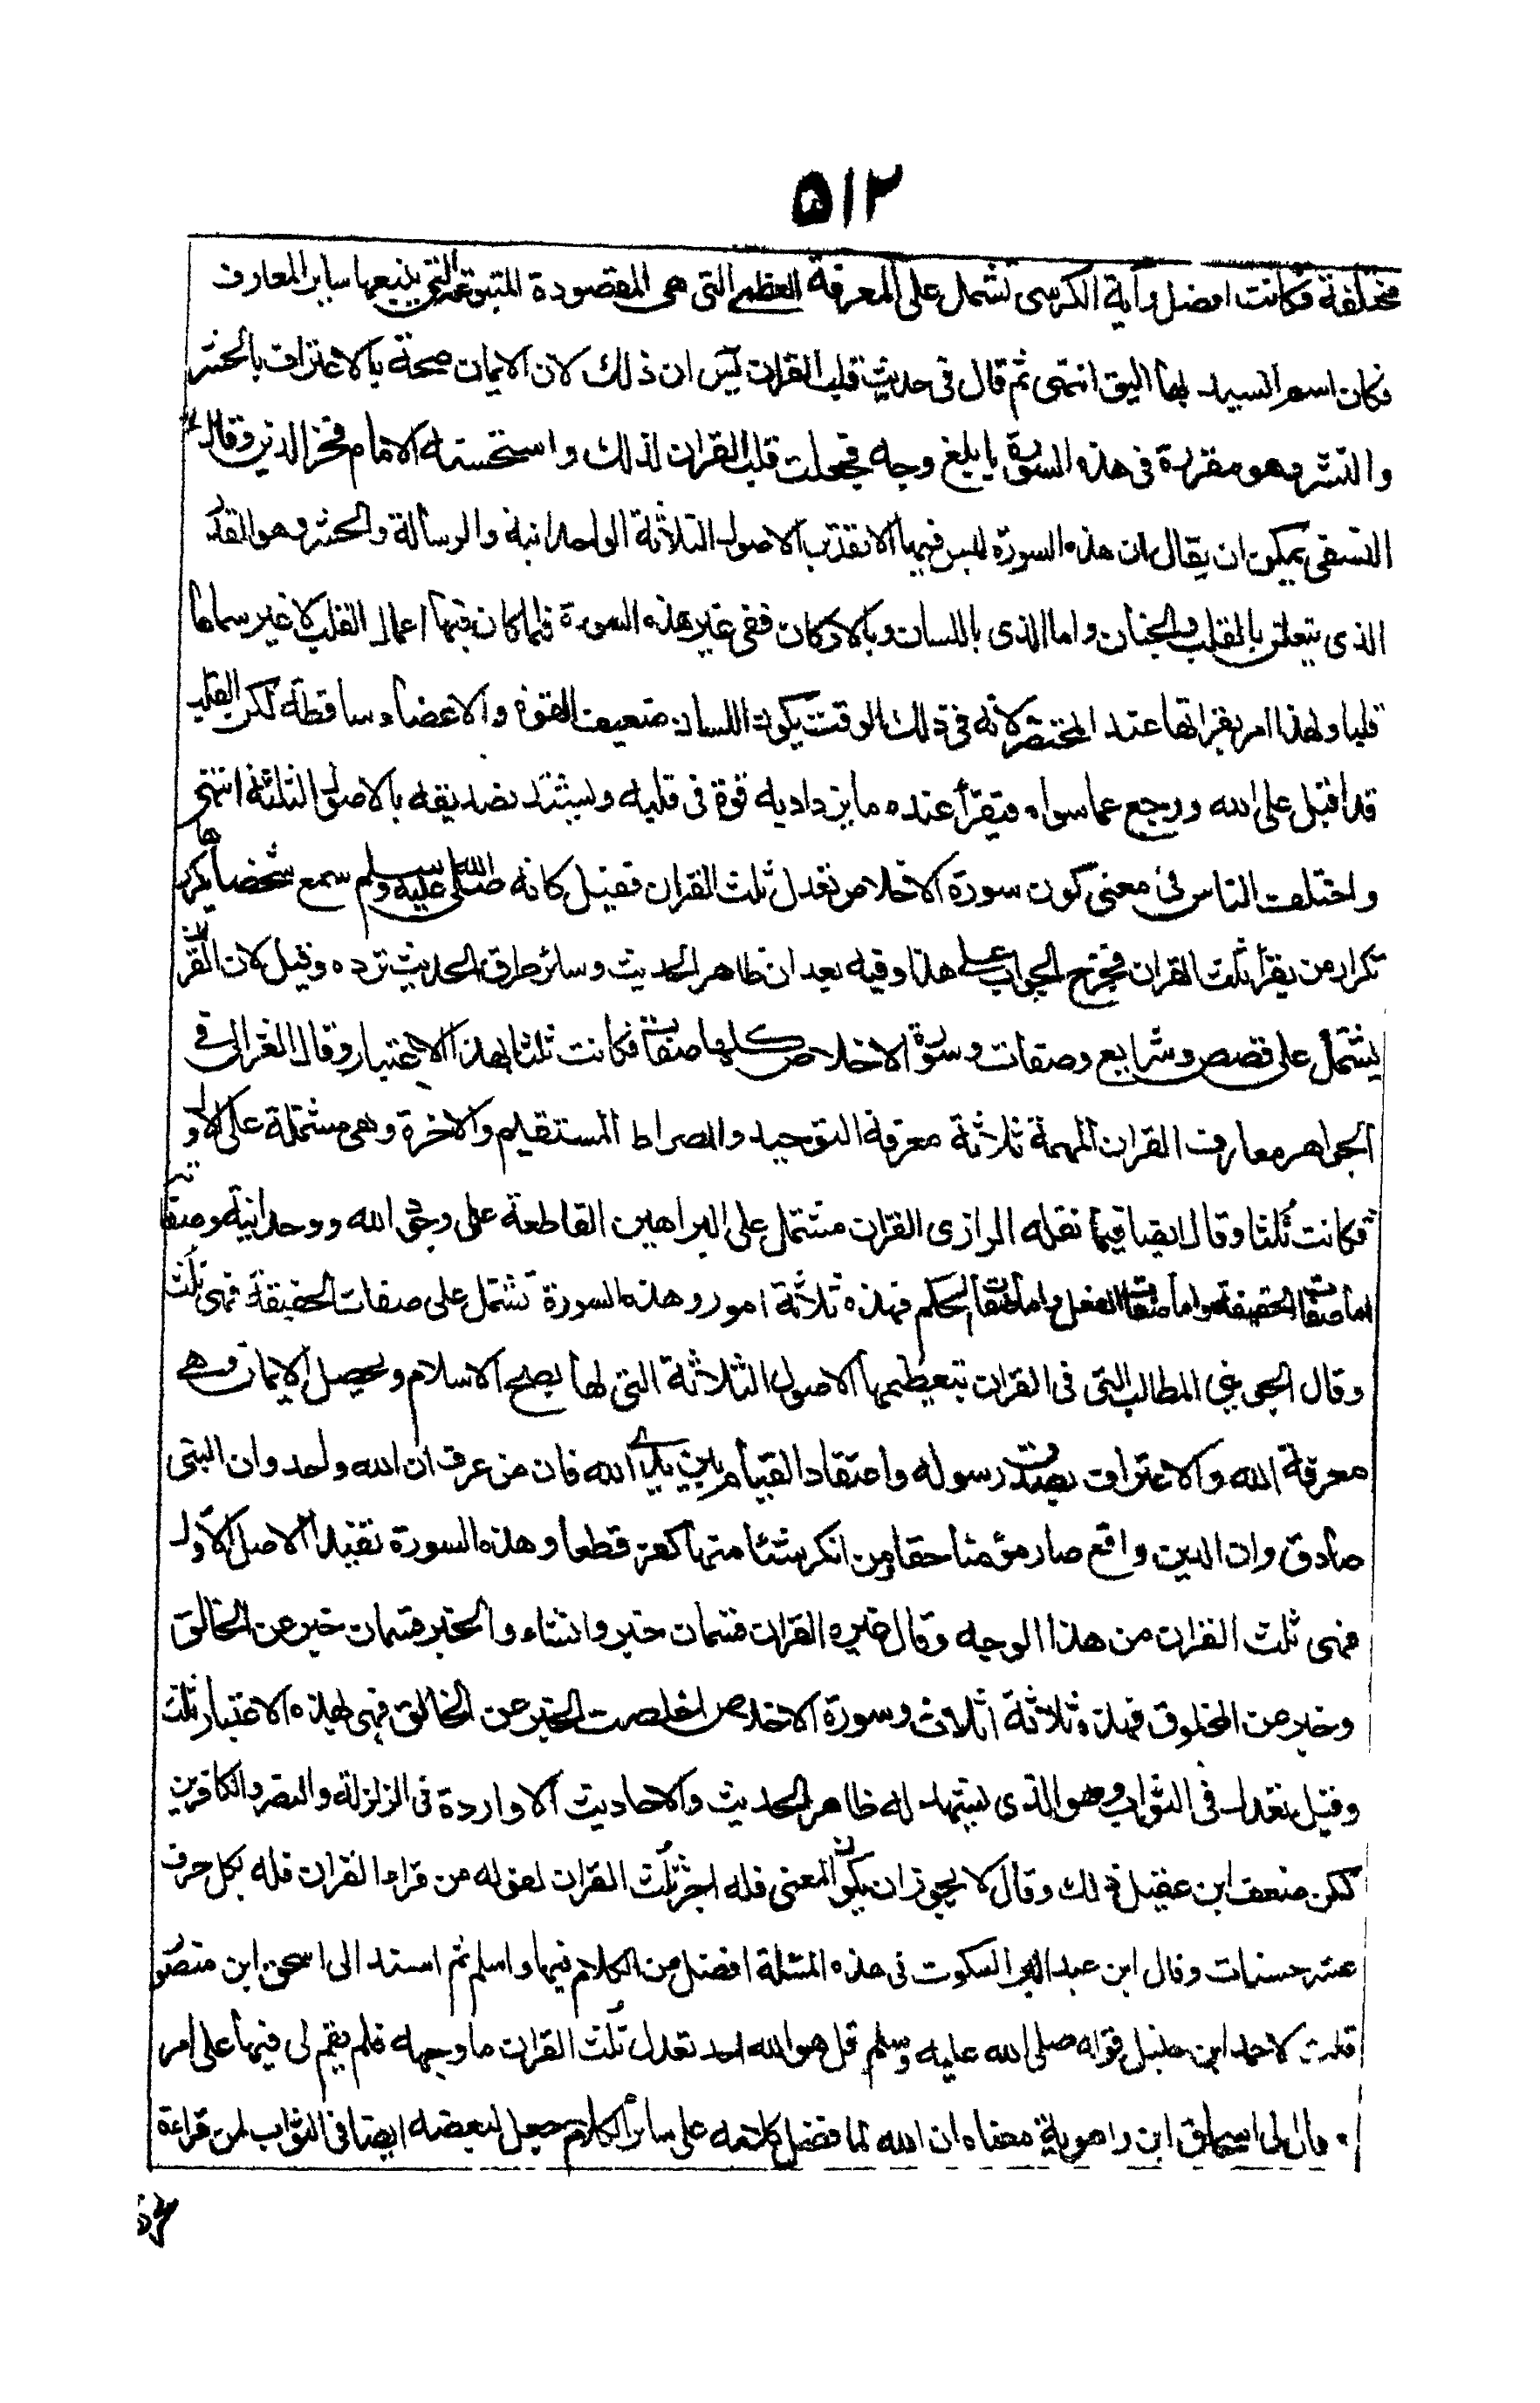 ٥١٢
مختلفة فكانت افضل وآية الكرسى تشمل على المعرفة العظمى التى هى المقصودة المتبوعة التى يتبعها سائر المعارف
فكان اسم السيد بها اليق انتهى ثم قال فى حديث قلب القران يس ان ذلك لان الايمان صحته بالاعتراف بالحشر
والنشر وهو مقررة فى هذه السورة بابلغ وجه فجعلت قلب القران لذلك واستحسنه الامام فخر الدين وقال
النسفى يمكن ان يقال ان هذه السورة ليس فيها الا تقرير الاصول الثلاثة الواحدانية والرسالة والحشر وهو القدر
الذى يتعلق بالقلب والجنان واما الذى باللسان وبالاركان ففى غير هذه السورة فلما كان فيها اعمال القلب لا غير سماها
قلبا ولهذا امر بقراتها عند المحتضر لانه فى ذلك الوقت يكون اللسان ضعيف القوة والاعضاء ساقطة لكن القلب
قد اقبل على الله ورجع عما سواه فيقرأ عنده ما يزداد به قوة فى قلبه ويشتد تصديقه بالاصول الثلثة انتهى
واختلف الناس فى معنى كون سورة الاخلاص تعدل ثلث القران فقيل كانه صلى الله عليه وسلم سمع شخصا يكررها
تكرار من يقرأ ثلث القران فخرج الجواب على هذا وفيه بعد ان ظاهر الحديث وسائر طرق الحديث ترده وقيل لان القران
يشتمل على قصص وشرايع وصفات وسورة الاخلاص كلها صفات فكانت ثلثا بهذا الاعتبار وقال الغزالى فى
الجواهر معارف القران المهمة ثلاثة معرفة التوحيد والصراط المستقيم والاخرة وهى مشتملة على الاول
فكانت ثلثا وقال ايضا فيما نقله الرازى القران مشتمل على البراهين القاطعة على وجود الله ووحدانيته وصفاته
اما صفات الحقيقة واما صفات الفعل واما صفات الحكم فهذه ثلاثة امور وهذه السورة تشتمل على صفات الحقيقة فهى ثلث
وقال الجوينى المطالب التى فى القران بتعظيمها الاصول الثلاثة التى لها يصح الاسلام ويحصل الايمان وهى
معرفة الله والاعتراف بصدق رسوله واعتقاد القيام بين يدى الله فان من عرف ان الله واحد وان النبى
صادق وان الدين واقع صار مؤمنا حقا ومن انكر شئا منها كفر قطعا وهذه السورة تفيد الاصل الاول
فهى ثلث القران من هذا الوجه وقال غيره القران قسمان خبر وانشاء والخبر قسمان خبر عن الخالق
وخبر عن المخلوق فهذه ثلاثة اثلاث وسورة الاخلاص اخلصت الخبر عن الخالق فهى بهذه الاعتبار ثلث
وقيل تعدل فى الثواب وهو الذى يشهد له ظاهر الحديث والاحاديث الاواردة فى الزلزلة والنصر والكافرين
لكن ضعف ابن عقيل ذلك وقال لا يجوز ان يكون المعنى فله اجر ثلث القران لقوله من قراء القران فله بكل حرف
عشر حسنات وقال ابن عبد البر السكوت فى هذه المسئلة افضل من الكلام فيها واسلم ثم اسند الى اسحق ابن منصور
قلت لاحمد ابن حنبل قوله صلى الله عليه وسلم قل هو الله احد تعدل ثلث القران ما وجهه فلم يقم لى فيها على امر
وقال لى اسحاق ابن راهويه معناه ان الله لما فضل كلامه على سائر الكلام جعل لبعضه ايضا فى الثواب لمن قراءة